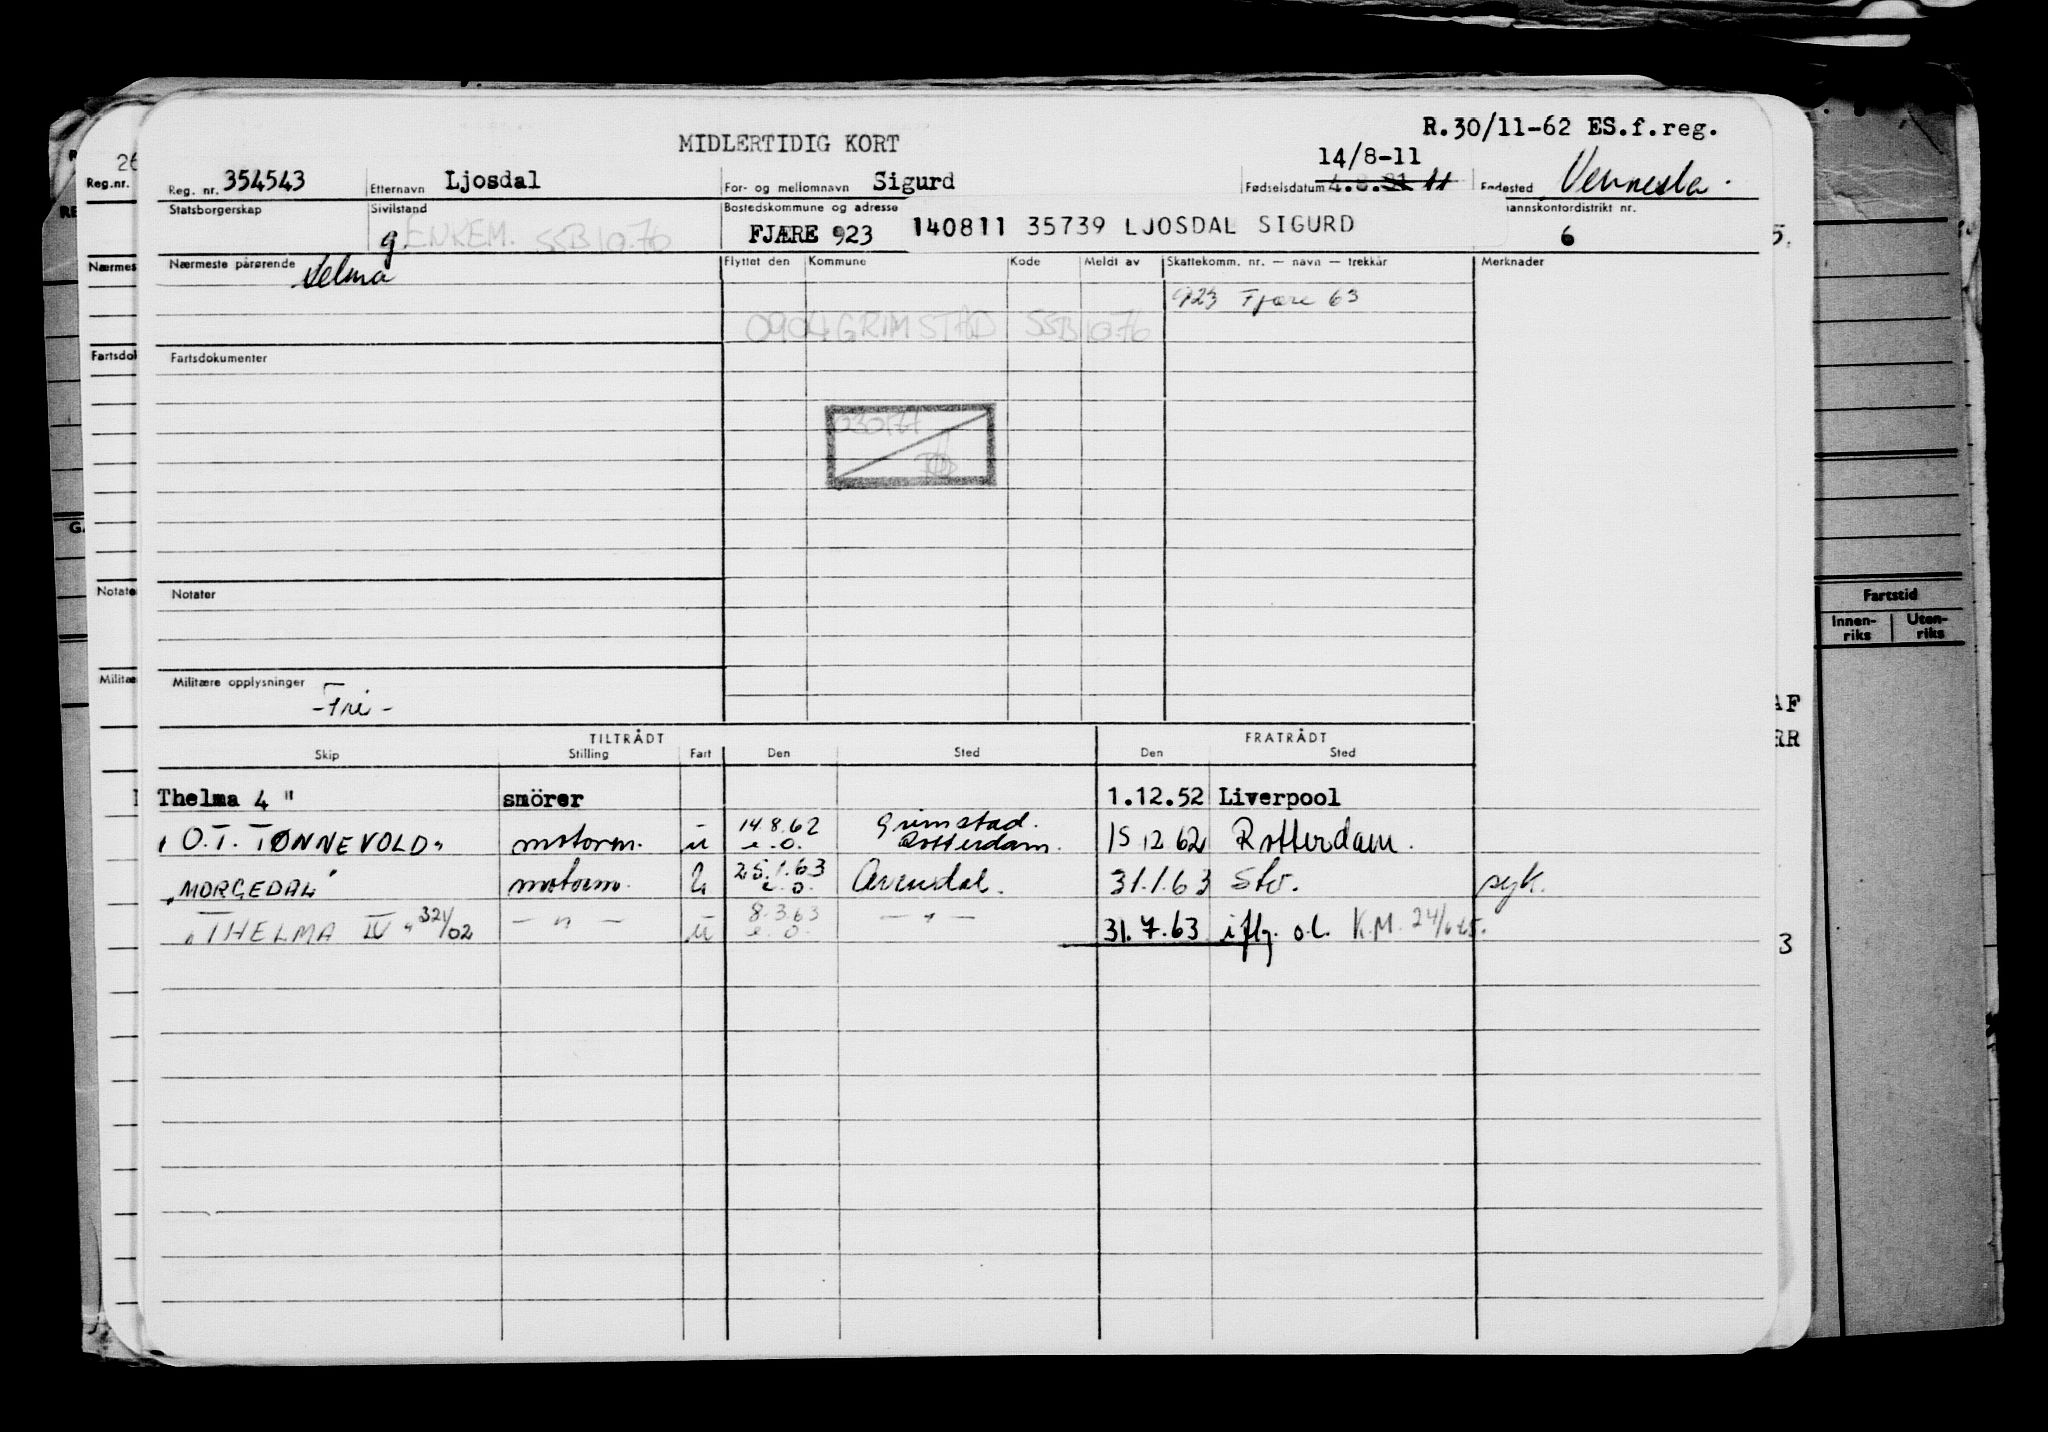 R.30/11-62 ES.f.reg.
MIDLERTIDIG KORT
14/8-11
26
Reg.nr.
Reg. nr. 354543 Etternavn Ljosdal For- og mellomnavn Sigurd Fødselsdatum 4.8. 11 Fødested Vennesla.
Statsborgerskap Sivilstand Bostedskommune og adresse mannskontordistrikt nr.
g. ENKEM. SSB 10.76 FJÆRE 923 140811 35739 LJOSDAL SIGURD 6 5.
Nærmes Nærmeste pårørende Selma Flyttet den Kommune Kode Meldt av Skattekomm. nr. — navn — trekkår Merknader
923 Fjære 63
0904 GRIMSTAD SSB 10.76
Fartsdok Fartsdokumenter
Notate Notater
Fartstid
Innen-riks Uten-riks
Militæ Militære opplysninger
-Fri-
AF
TILTRÅDT FRATRÅDT
ER
Skip Stilling Fart Den Sted Den Sted
Thelma 4 " smörer 1.12.52 Liverpool
"O.T. TØNNEVOLD" motorm. u 14.8.62 e.o. Grimstad. Rotterdam. 15 12 62 Rotterdam.
"MORGEDAL" motorm. u 25.1.63 e.o. Arendal. 31.1.63 Sto. syk.
"THELMA IV" 321/02 — " — u 8.3.63 e.o. — " — 31.7.63 iflg. o.l. K.M.
3